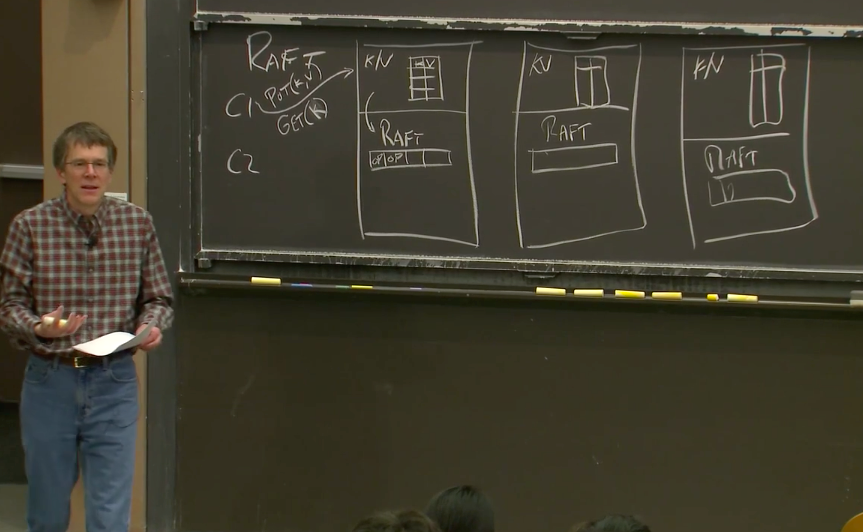 RAFT
C1
PUT(K,V)
GET(K)
C2
KV
KV
RAFT
OP|OP|
KV
RAFT
KV
RAFT